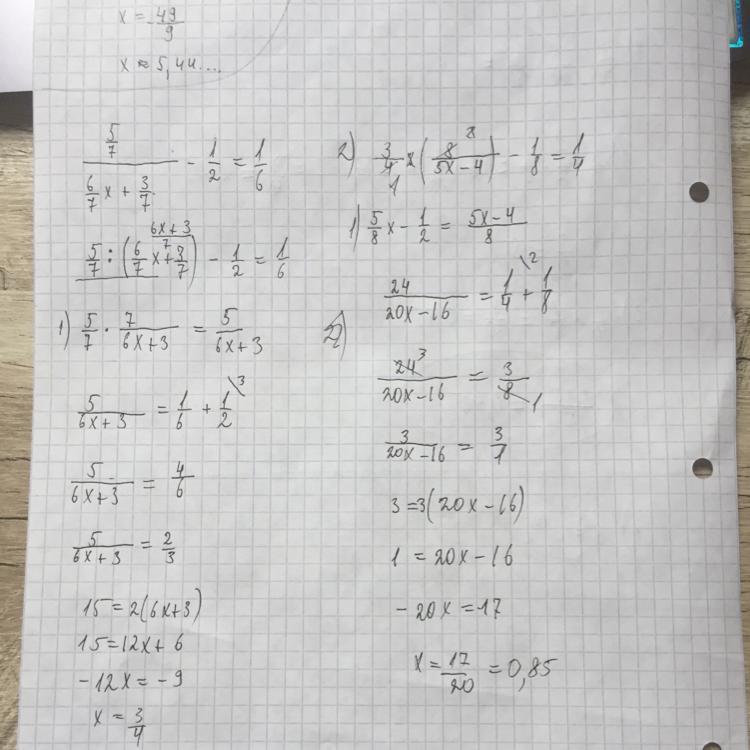 x = 49/9
x ≈ 5,44...
(5/7)/(6/7 x + 3/7) - 1/2 = 1/6
5/7 : (6/7 x + 3/7) - 1/2 = 1/6
6x+3/7
1) 5/7 · 7/(6x+3) = 5/(6x+3)
5/(6x+3) = 1/6 + 1/2 \3
5/(6x+3) = 4/6
5/(6x+3) = 2/3
15 = 2(6x+3)
15 = 12x + 6
-12x = -9
x = 3/4
2) 3/4 x (8/(5x-4)) - 1/8 = 1/4
8
1
1) 5/8 x - 1/2 = (5x-4)/8
24/(20x-16) = 1/4 \2 + 1/8
2)
24/(20x-16) = 3/8
3
1
3/(20x-16) = 3/1
3 = 3(20x-16)
1 = 20x-16
-20x = 17
x = 17/20 = 0,85